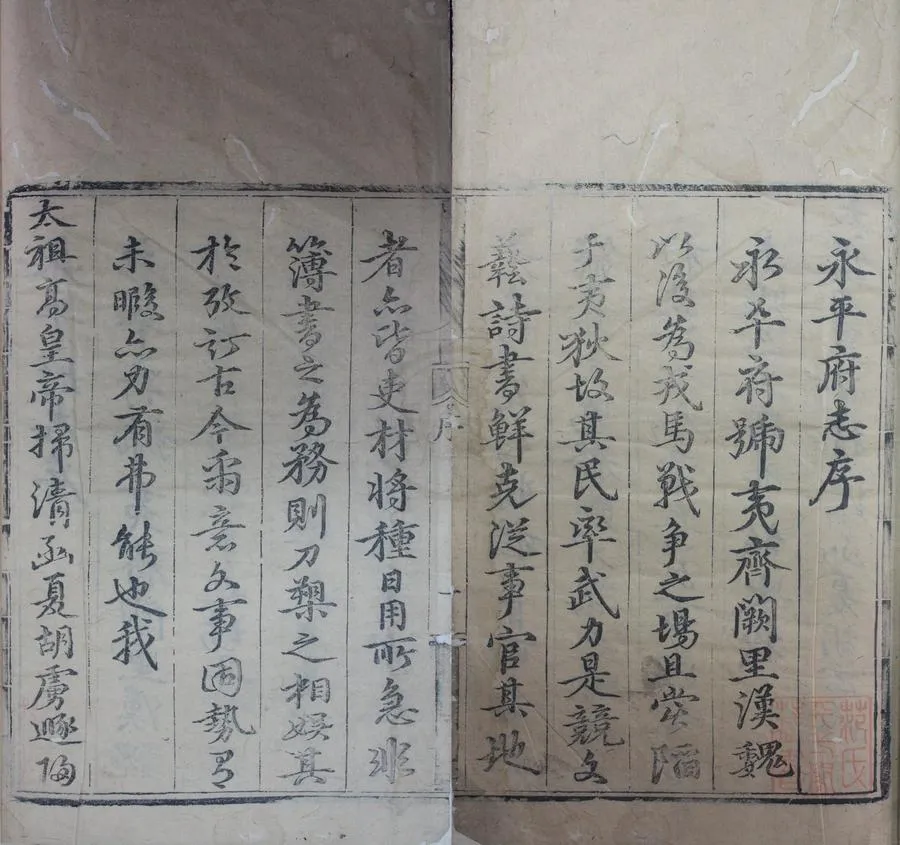 永平府志序
永平府號夷齊闕里漢魏
以後為戎馬戰爭之場且嘗陷
于夷狄故其民率武力是競文
藝詩書鮮克從事官其地
序
者亦皆吏材將種日用所急非
簿書之為務則刀槊之相娛其
於攷訂古今留意文事固勢有
未暇亦力有弗能也我
太祖高皇帝掃清函夏胡虜遯